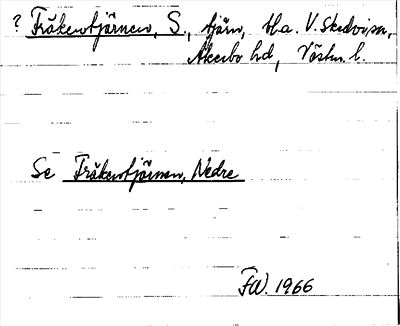 ? Fräkentjärnen, S., tjärn, bl.a. V. Skedvi sn,
Åkerbo hd, Västm. l.
Se Fräkentjärnen, Nedre
FW. 1966